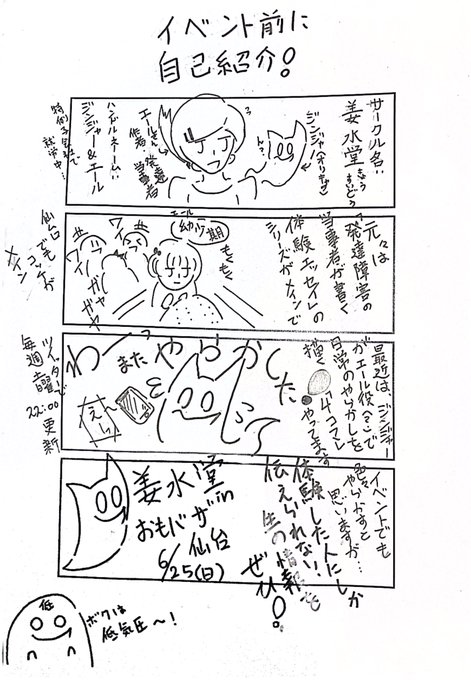 イベント前に
自己紹介!
サークル名:
姜水堂
きょうすいどう
ジンジャー(オリキャラ)
ん?
エールさん
作者
発達
当事者
ハンドルネーム:
ジンジャー&エール
就労中…
元々は
「発達障害の
当事者が書く
体験エッセイ」の
シリーズがメインで
エール
幼少期
もくもく
ワイ
ワイ
ガヤ
ガヤ
仙台
でも
コレが
メイン
最近は、ジンジャー
がエール役(?)で
日常のやらかしを
描く
4コマを
やってます
わーっ
また
やらかした
えっ
ツイッターで
毎週土曜日
22:00
更新
イベントでも
色々やらかすと
思いますが…
体験した人にしか
伝えられない!
生の情報を
ぜひ!
姜水堂
おもバザin
仙台
6/25(日)
低
ボクは
低気圧〜!